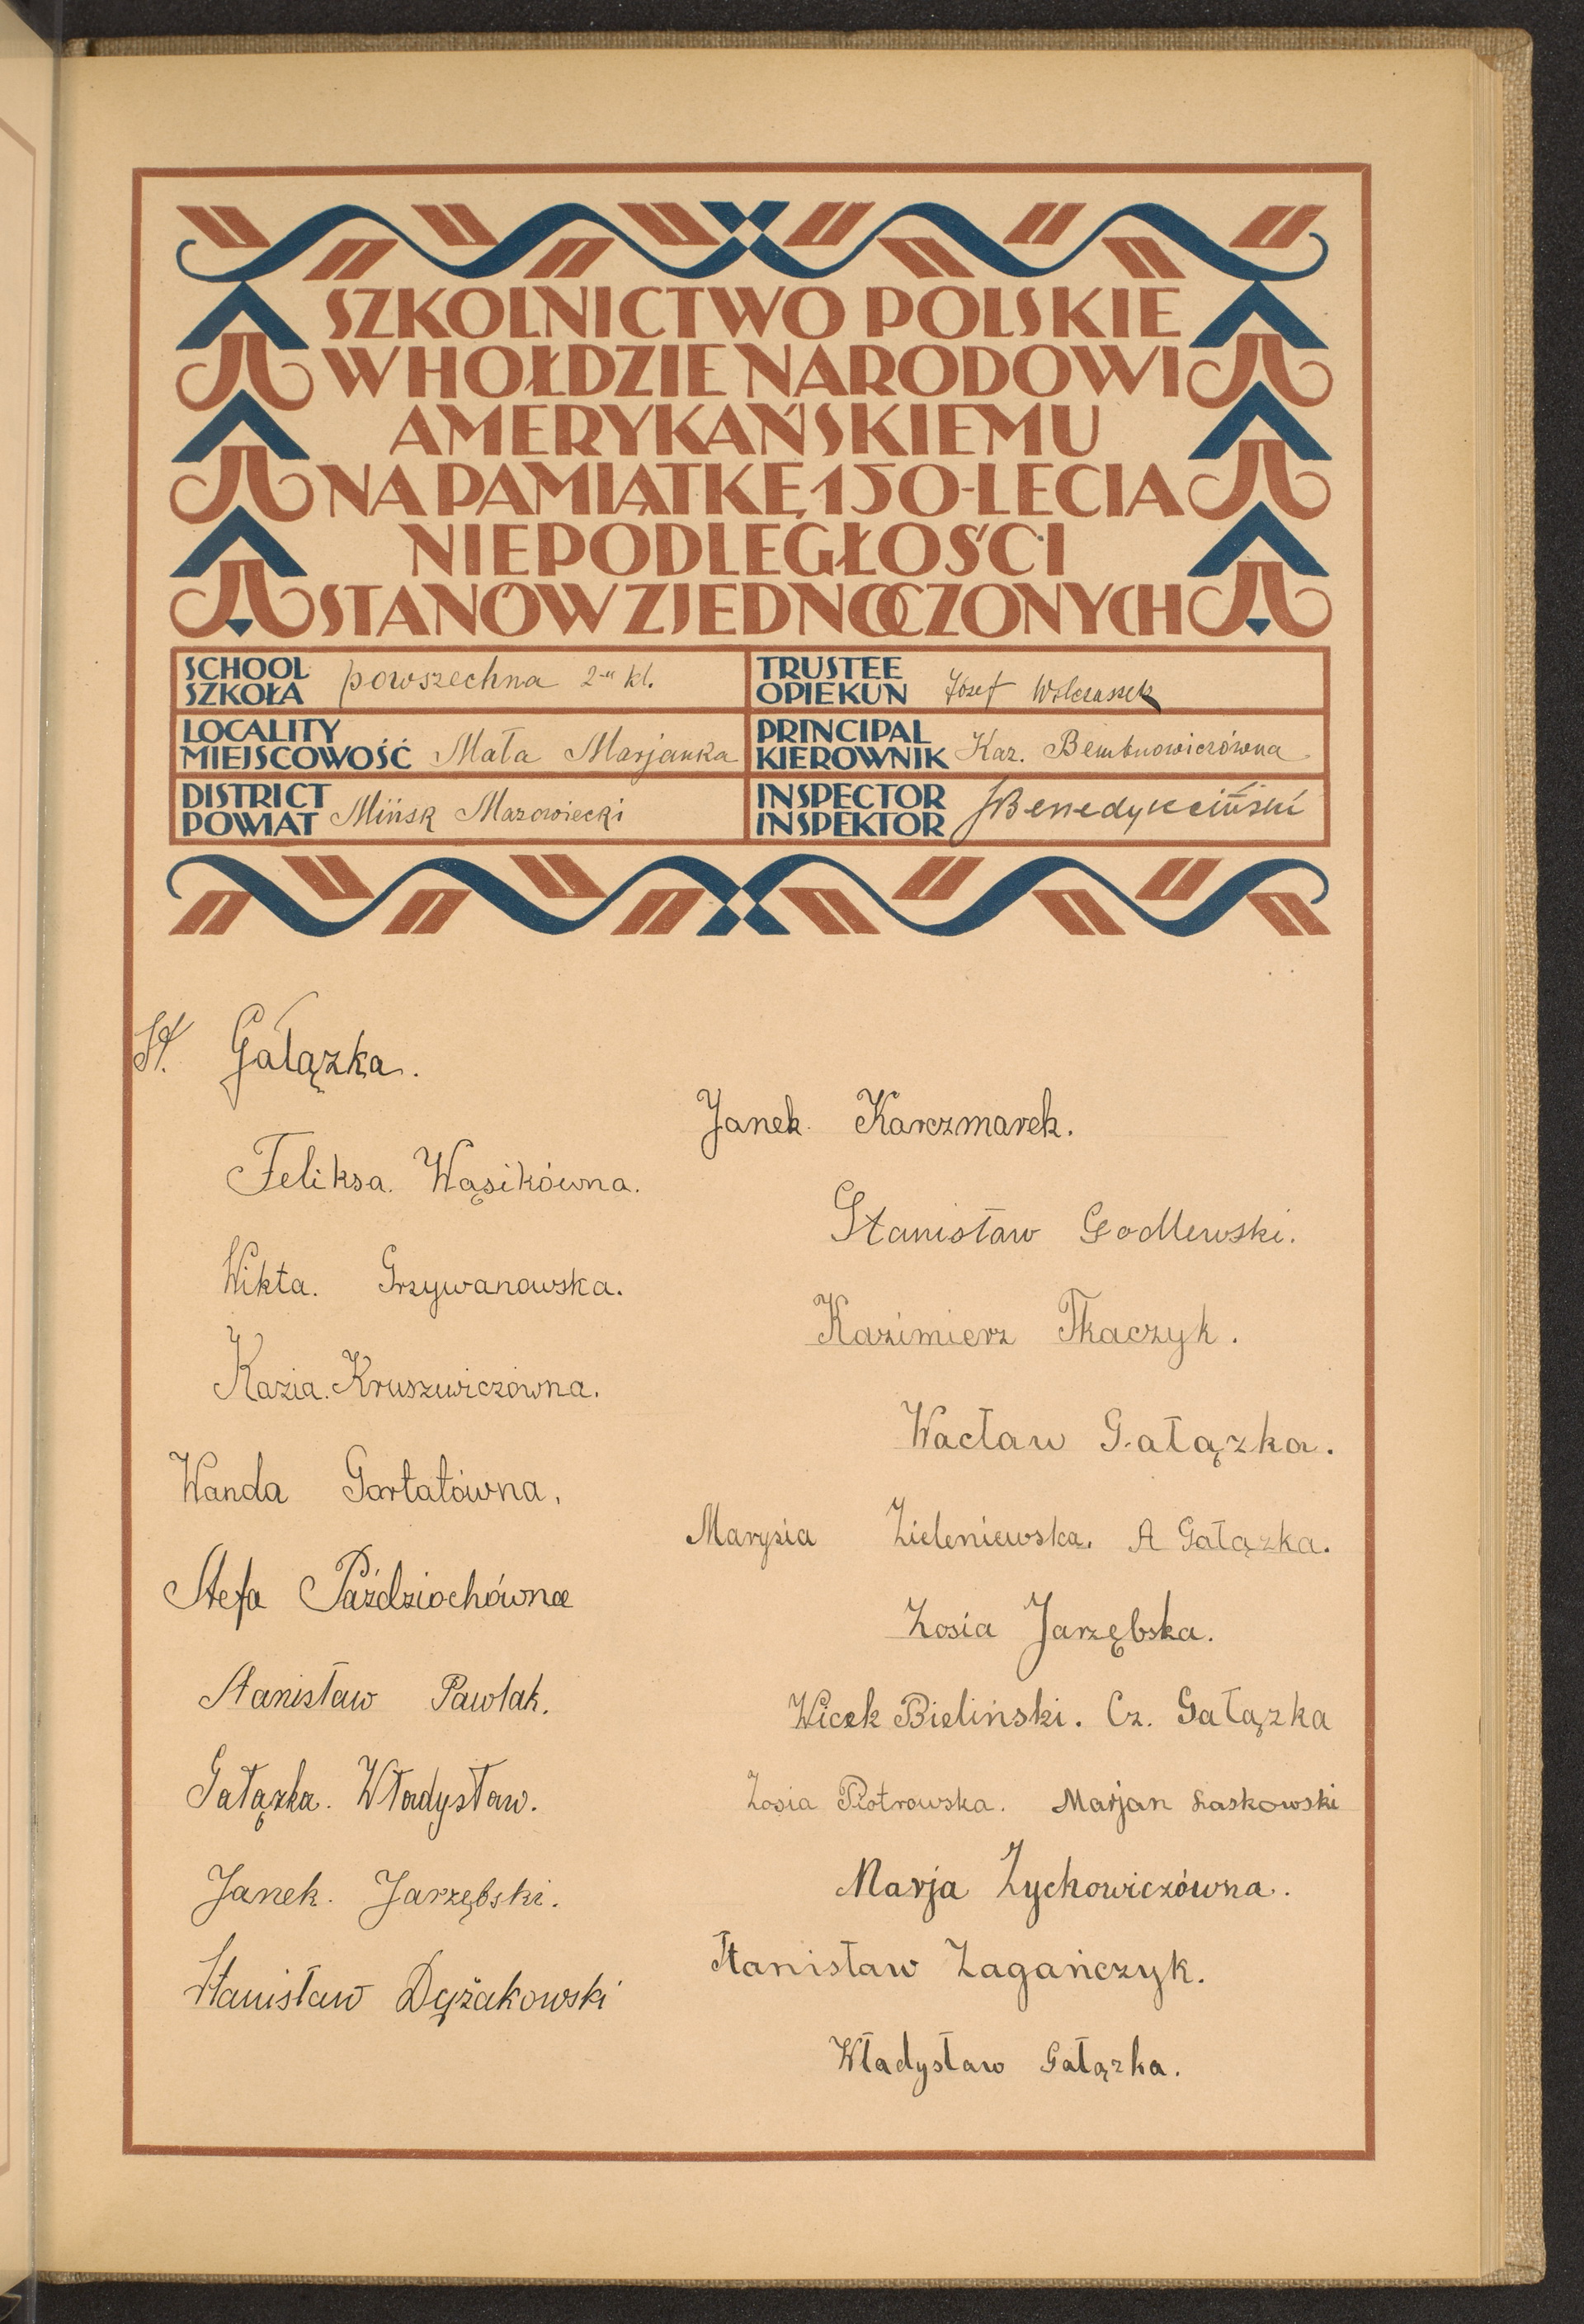 SZKOLNICTWO POLSKIE
W HOŁDZIE NARODOWI
AMERYKAŃSKIEMU
NA PAMIĄTKĘ 150-LECIA
NIEPODLEGŁOŚCI
STANÓW ZJEDNOCZONYCH
SCHOOL
SZKOŁA powszechna 2-u kl.
TRUSTEE
OPIEKUN Józef
LOCALITY
MIEJSCOWOŚĆ Mała Marjanka
PRINCIPAL
KIEROWNIK Kaz. Bembnowiczówna
DISTRICT
POWIAT Mińsk Mazowiecki
INSPECTOR
INSPEKTOR JBenedykciński
St. Gałązka.
Feliksa. Wąsikówna.
Wikta. Grzywanowska.
Kazia. Kruszwiczówna.
Wanda Gartatówna.
Stefa Paździochówna
Stanisław Pawlak.
Gałązka. Władysław.
Janek. Jarzębski.
Stanisław Dążakowski
Janek Karczmarek.
Stanisław Godlewski.
Kazimierz Tkaczyk.
Wacław Gałązka.
Marysia Zieleniewska. A Gałązka.
Zosia Jarzębska.
Wicek Bieliński. Cz. Gałązka
Zosia Piotrowska. Marjan Laskowski
Marja Zychowiczówna.
Stanisław Zagańczyk.
Władysław Gałązka.